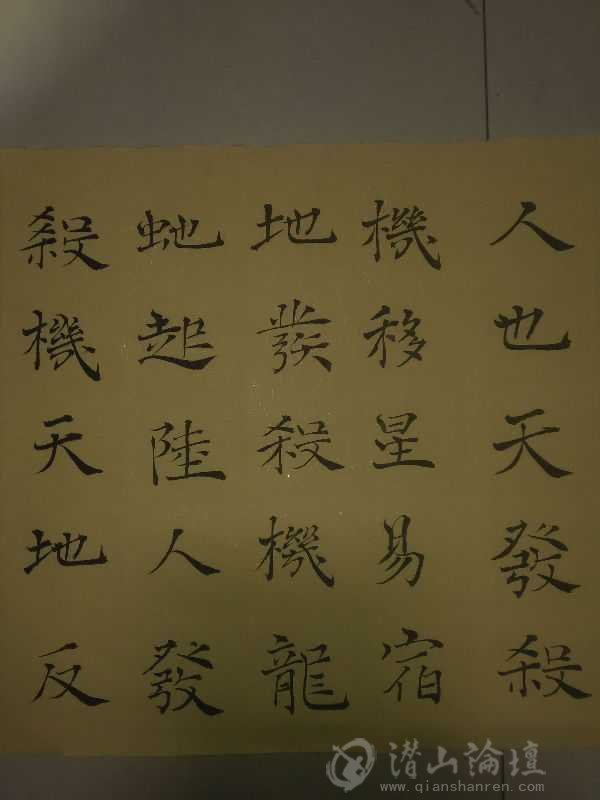 人也天發殺
機移星易宿
地發殺機龍
虵起陸人發
殺機天地反
潜山論壇
www.qianshanren.com